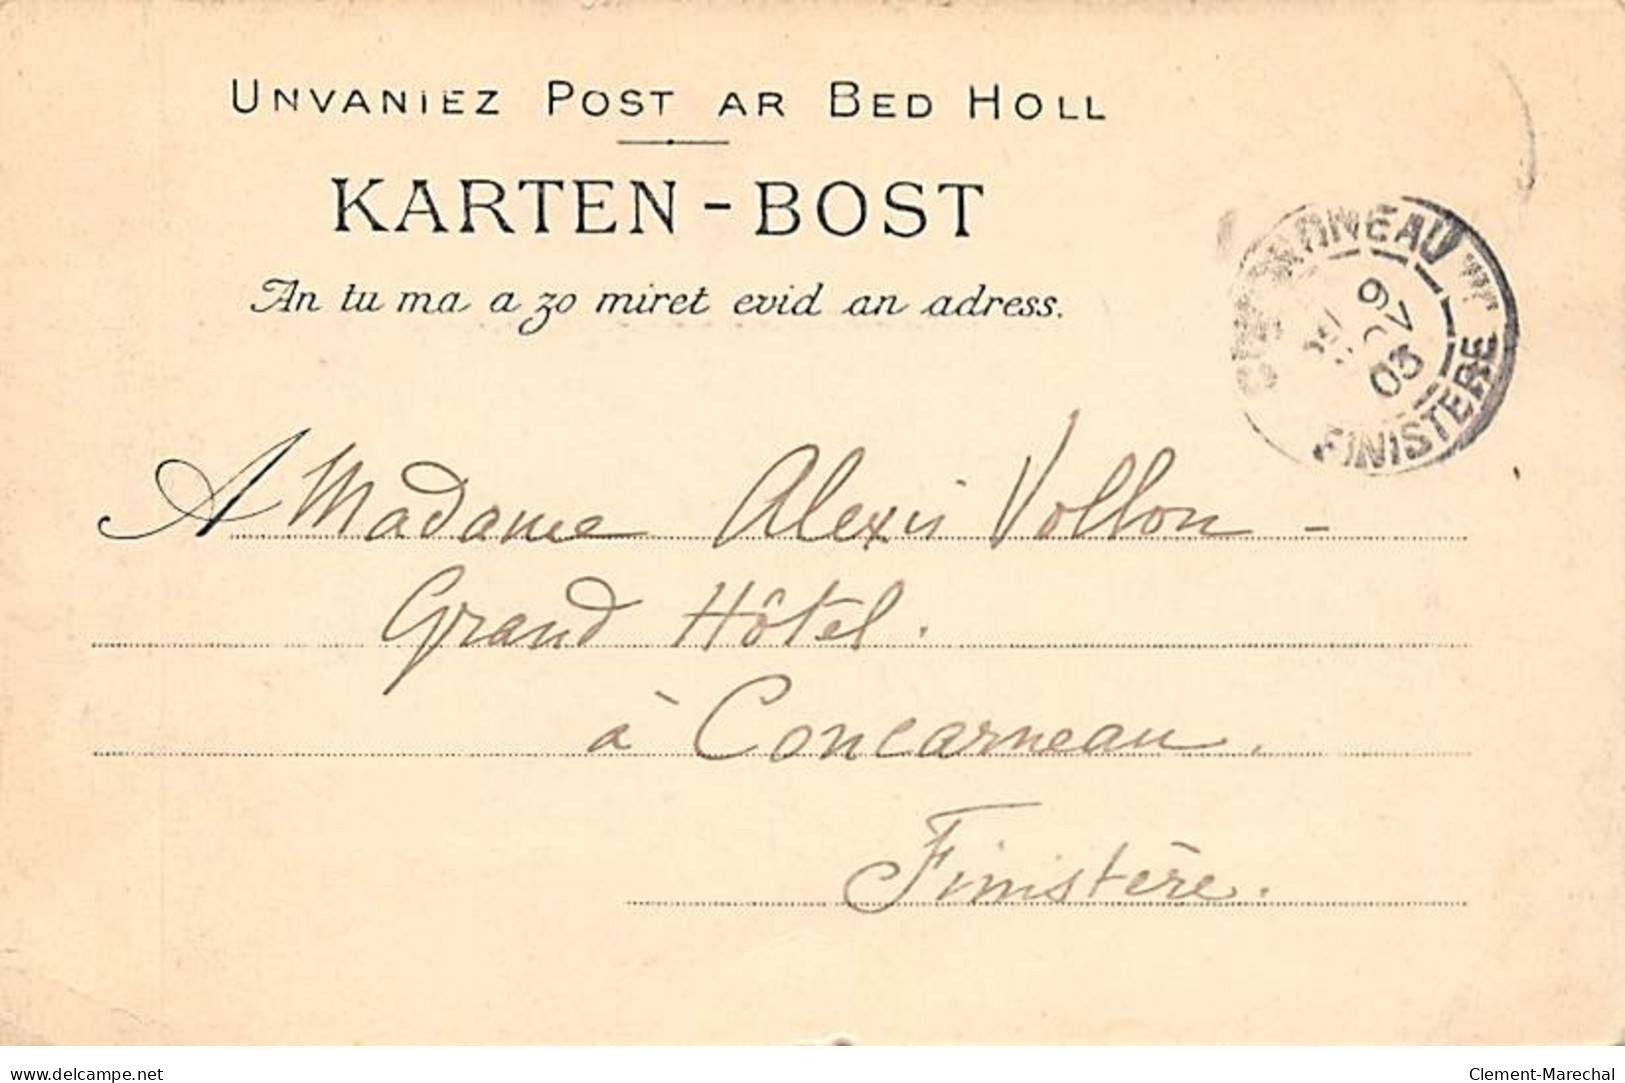 UNVANIEZ POST AR BED HOLL
KARTEN-BOST
An tu ma a zo miret evid an adress.
CONCARNEAU
9
03
FINISTERE
A Madame Alexis Vollon -
Grand Hôtel.
à Concarneau.
Finistère.
www.delcampe.net
Clement-Marechal